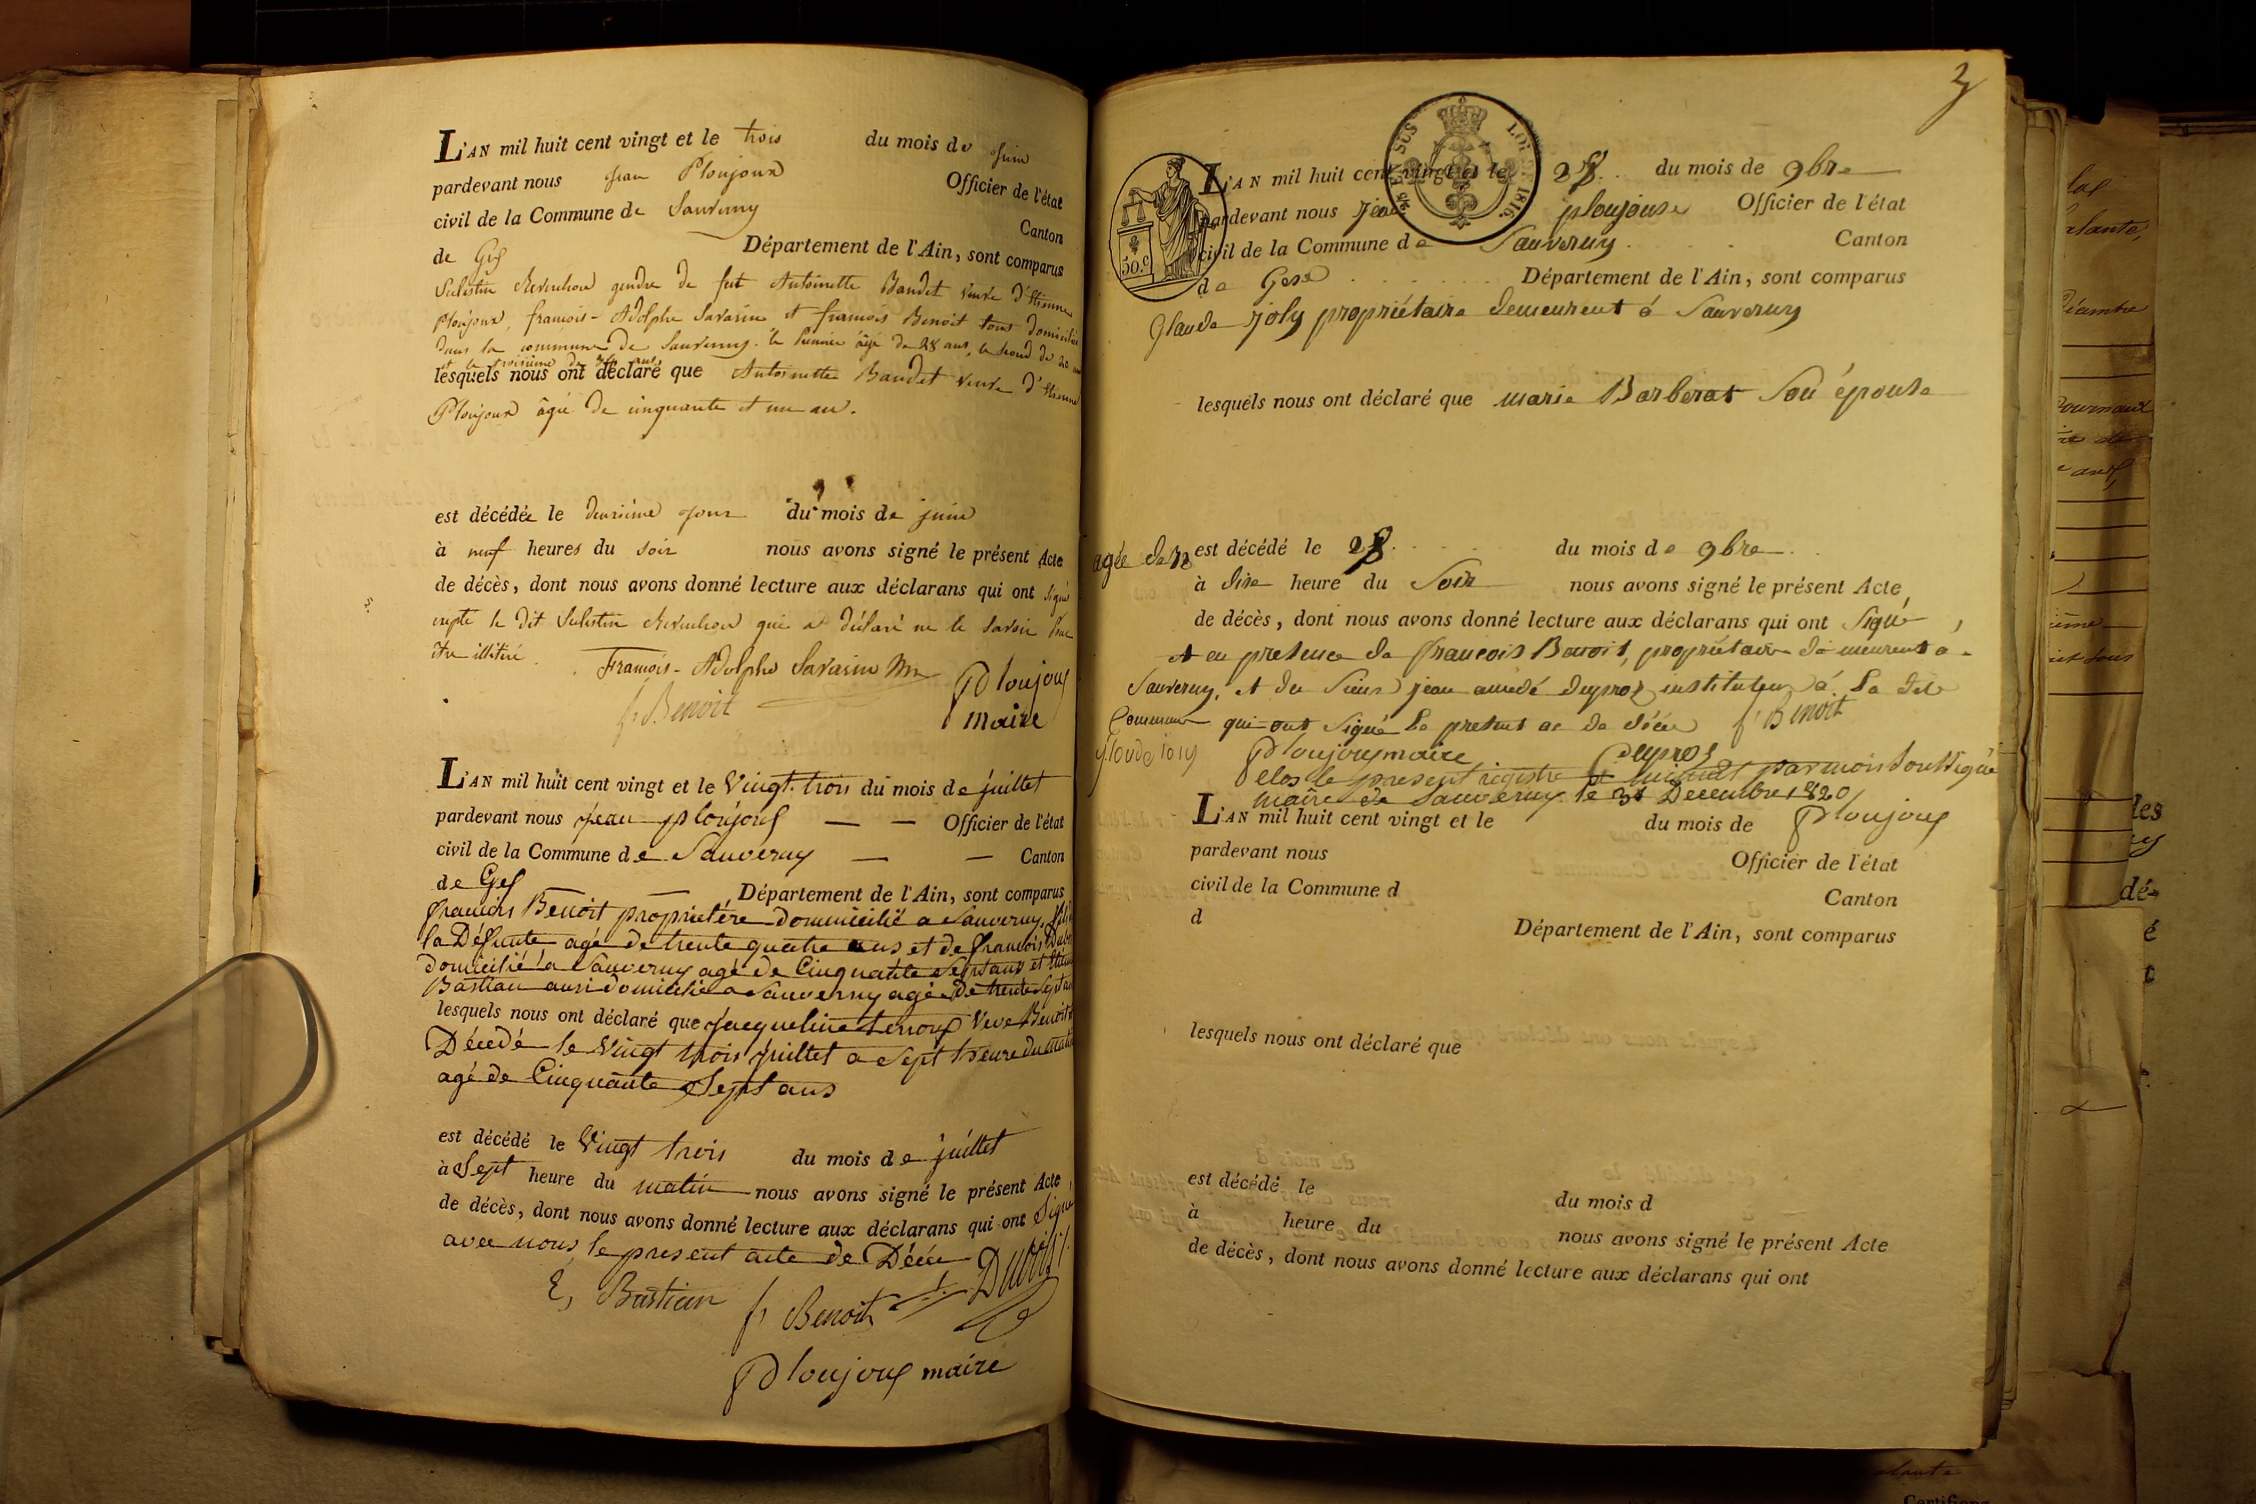 L'AN mil huit cent vingt et le trois du mois de juin
pardevant nous jean Ploujoux Officier de l'état
civil de la Commune de Sauverny Canton
de Gex Département de l'Ain, sont comparus
gendre de feu Antoinette Baudet veuve d'Etienne
Ploujoux, francois-Adolphe Savarin et francois Benoit tous domiciliés
dans la commune de Sauverny. le premier âgé de 28 ans, le second de 20 ans
et le troisième de 34 ans
lesquels nous ont déclaré que Antoinette Baudet veuve d'Etienne
Ploujoux âgée de cinquante et un an.
est décédée le deuxieme jour du mois de juin
à neuf heures du soir nous avons signé le présent Acte
de décès, dont nous avons donné lecture aux déclarans qui ont signé
le dit qui a déclaré ne le savoir pour
être illitéré.
François-Adolphe Savarin
Ploujoux
f. Benoit
maire
L'AN mil huit cent vingt et le Vingt-trois du mois de juillet
pardevant nous jean ploujoux Officier de l'état
civil de la Commune de Sauverny Canton
de Gex Département de l'Ain, sont comparus
francois Benoit proprietère domicilié a Sauverny,
la Défunte agé de trente quatre ans et de francois Dubois
domicilié a Sauverny agé de Cinquante Sept ans et Etienne
Bastian ausi domicilié a Sauverny agé de trente Sept ans
lesquels nous ont déclaré que jacqueline Veve Benoit
Décédé le Vingt trois juillet a Sept heure du matin
agé de Cinquante Sept ans
est décédé le Vingt trois du mois de juillet
à Sept heure du matin nous avons signé le présent Acte
de décès, dont nous avons donné lecture aux déclarans qui ont Signé
avec nous le present acte de Décée
Dubois
E, Bastian f, Benoit
Ploujoux maire
3
50.c
LOI DE 1816.
L'AN mil huit cent vingt et le 28 du mois de 9bre
pardevant nous Jean ploujouse Officier de l'état
civil de la Commune de Sauverny Canton
de Gese Département de l'Ain, sont comparus
Glaude joly propriétaire demeurent á Sauverny
lesquels nous ont déclaré que marie Barberat Son épouse
agée de 72
est décédé le 28 du mois de 9bre
à dixe heure du Soir nous avons signé le présent Acte
de décès, dont nous avons donné lecture aux déclarans qui ont Signé
et en presence de françois Benoit, propriétaire demeurent a
Sauverny, et du Sieur jean amedé dupraz instituteur á la dite
Commune qui ont Signé le present ac de décée f. Benoit
Gloude joly Ploujoux maire dupraz
clos le present registre par moi Soussigné
maire de Sauverny le 31 Decembre 1820
Ploujoux
L'AN mil huit cent vingt et le du mois de
pardevant nous Officier de l'état
civil de la Commune d Canton
d Département de l'Ain, sont comparus
lesquels nous ont déclaré que
est décédé le du mois d
à heure du nous avons signé le présent Acte
de décès, dont nous avons donné lecture aux déclarans qui ont